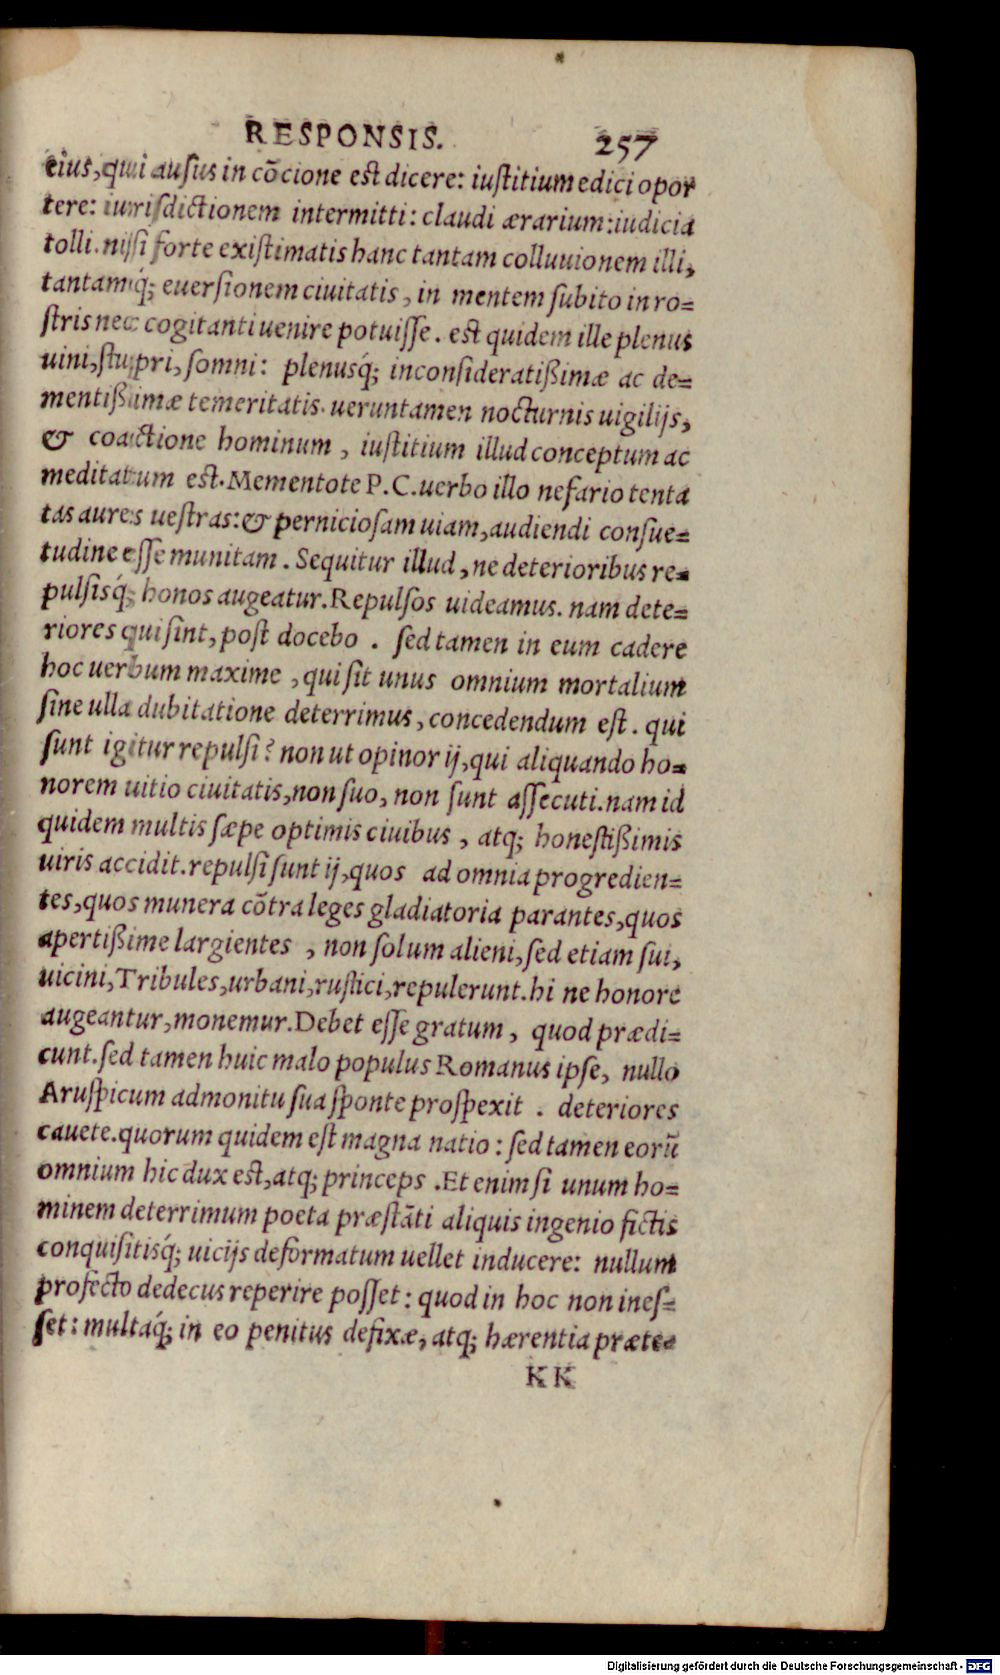 RESPONSIS. 257
eius, qui ausus in cõcione est dicere: iustitium edici opor
tere: iurisdictionem intermitti: claudi ærarium: iudicia
tolli. nisi forte existimatis hanc tantam colluuionem illi,
tantamq́; euersionem ciuitatis, in mentem subito in ro=
stris nec cogitanti uenire potuisse. est quidem ille plenus
uini, stupri, somni: plenusq́; inconsideratißimæ ac de=
mentißimæ temeritatis. ueruntamen nocturnis uigilijs,
& coactione hominum, iustitium illud conceptum ac
meditatum est. Mementote P. C. uerbo illo nefario tenta
tas aures uestras: & perniciosam uiam, audiendi consue=
tudine esse munitam. Sequitur illud, ne deterioribus re=
pulsisq́; honos augeatur. Repulsos uideamus. nam dete=
riores qui sint, post docebo. sed tamen in eum cadere
hoc uerbum maxime, qui sit unus omnium mortalium
sine ulla dubitatione deterrimus, concedendum est. qui
sunt igitur repulsi? non ut opinor ij, qui aliquando ho=
norem uitio ciuitatis, non suo, non sunt assecuti. nam id
quidem multis sæpe optimis ciuibus, atq; honestißimis
uiris accidit. repulsi sunt ij, quos ad omnia progredien=
tes, quos munera cõtra leges gladiatoria parantes, quos
apertißime largientes, non solum alieni, sed etiam sui,
uicini, Tribules, urbani, rustici, repulerunt. hi ne honore
augeantur, monemur. Debet esse gratum, quod prædi=
cunt. sed tamen huic malo populus Romanus ipse, nullo
Aruspicum admonitu sua sponte prospexit. deteriores
cauete. quorum quidem est magna natio: sed tamen eorũ
omnium hic dux est, atq; princeps. Et enim si unum ho=
minem deterrimum poeta præstãti aliquis ingenio fictis
conquisitisq́; uicijs deformatum uellet inducere: nullum
profecto dedecus reperire posset: quod in hoc non ines=
set: multaq́; in eo penitus defixæ, atq; hærentia præte=
KK
Digitalisierung gefördert durch die Deutsche Forschungsgemeinschaft - DFG